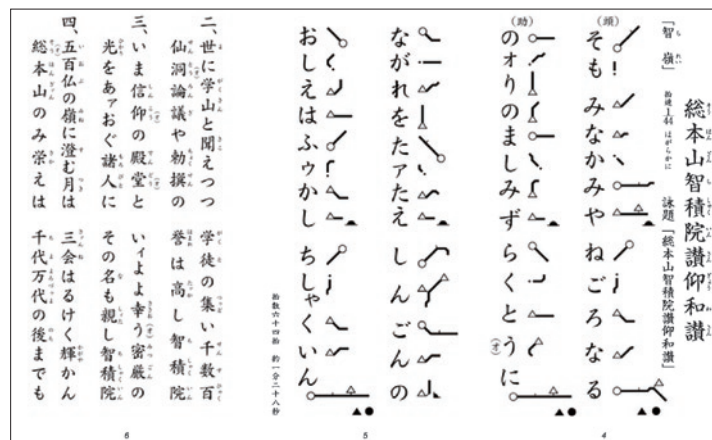 総本山智積院讃仰和讃
「智嶺」 拍速144 ほがらかに 詠題「総本山智積院讃仰和讃」
(頭) そも みなかみや ねごろなる
(助) のォりのましみず らくとうに
4
ながれをたァたえ しんごんの
おしえはふゥかし ちしゃくいん
拍数六十四拍 約一分二十八秒
5
二、世に学山と聞えつつ 学徒の集い千数百
仙洞論議や勅撰の 誉は高し智積院
三、いま信仰の殿堂と いィよよ幸う密厳の
光をあァおぐ諸人に その名も親し智積院
四、五百仏の嶺に澄む月は 三会はるけく輝かん
総本山のみ栄えは 千代万代の後までも
6